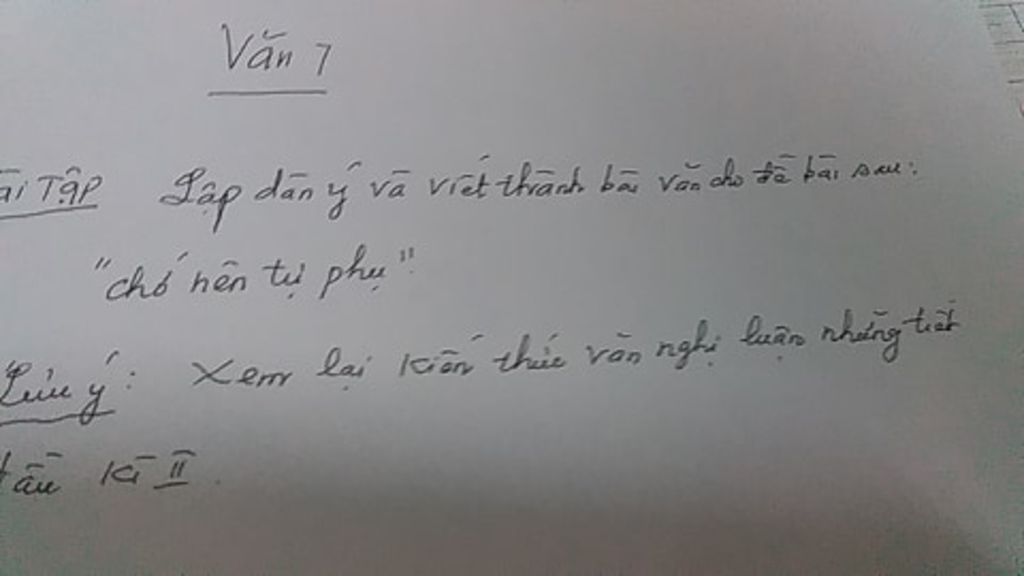 Văn 7
ài Tập Lập dàn ý và viết thành bài văn cho đề bài sau:
"chớ nên tự phụ".
Lưu ý: Xem lại kiến thức văn nghị luận những tiết
đầu kì II.